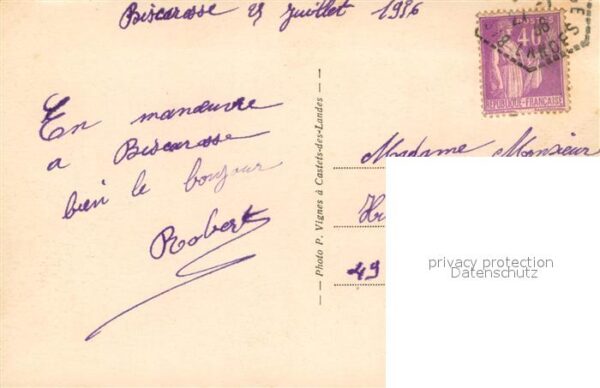 Biscarosse 23 Juillet 1936
En manœuvre
a Biscarosse
bien le bonjour
Robert
— Photo P. Vignes à Castets-des-Landes —
POSTES
40c
REPUBLIQUE-FRANÇAISE
36
LANDES
Madame Monsieur
49
privacy protection
Datenschutz